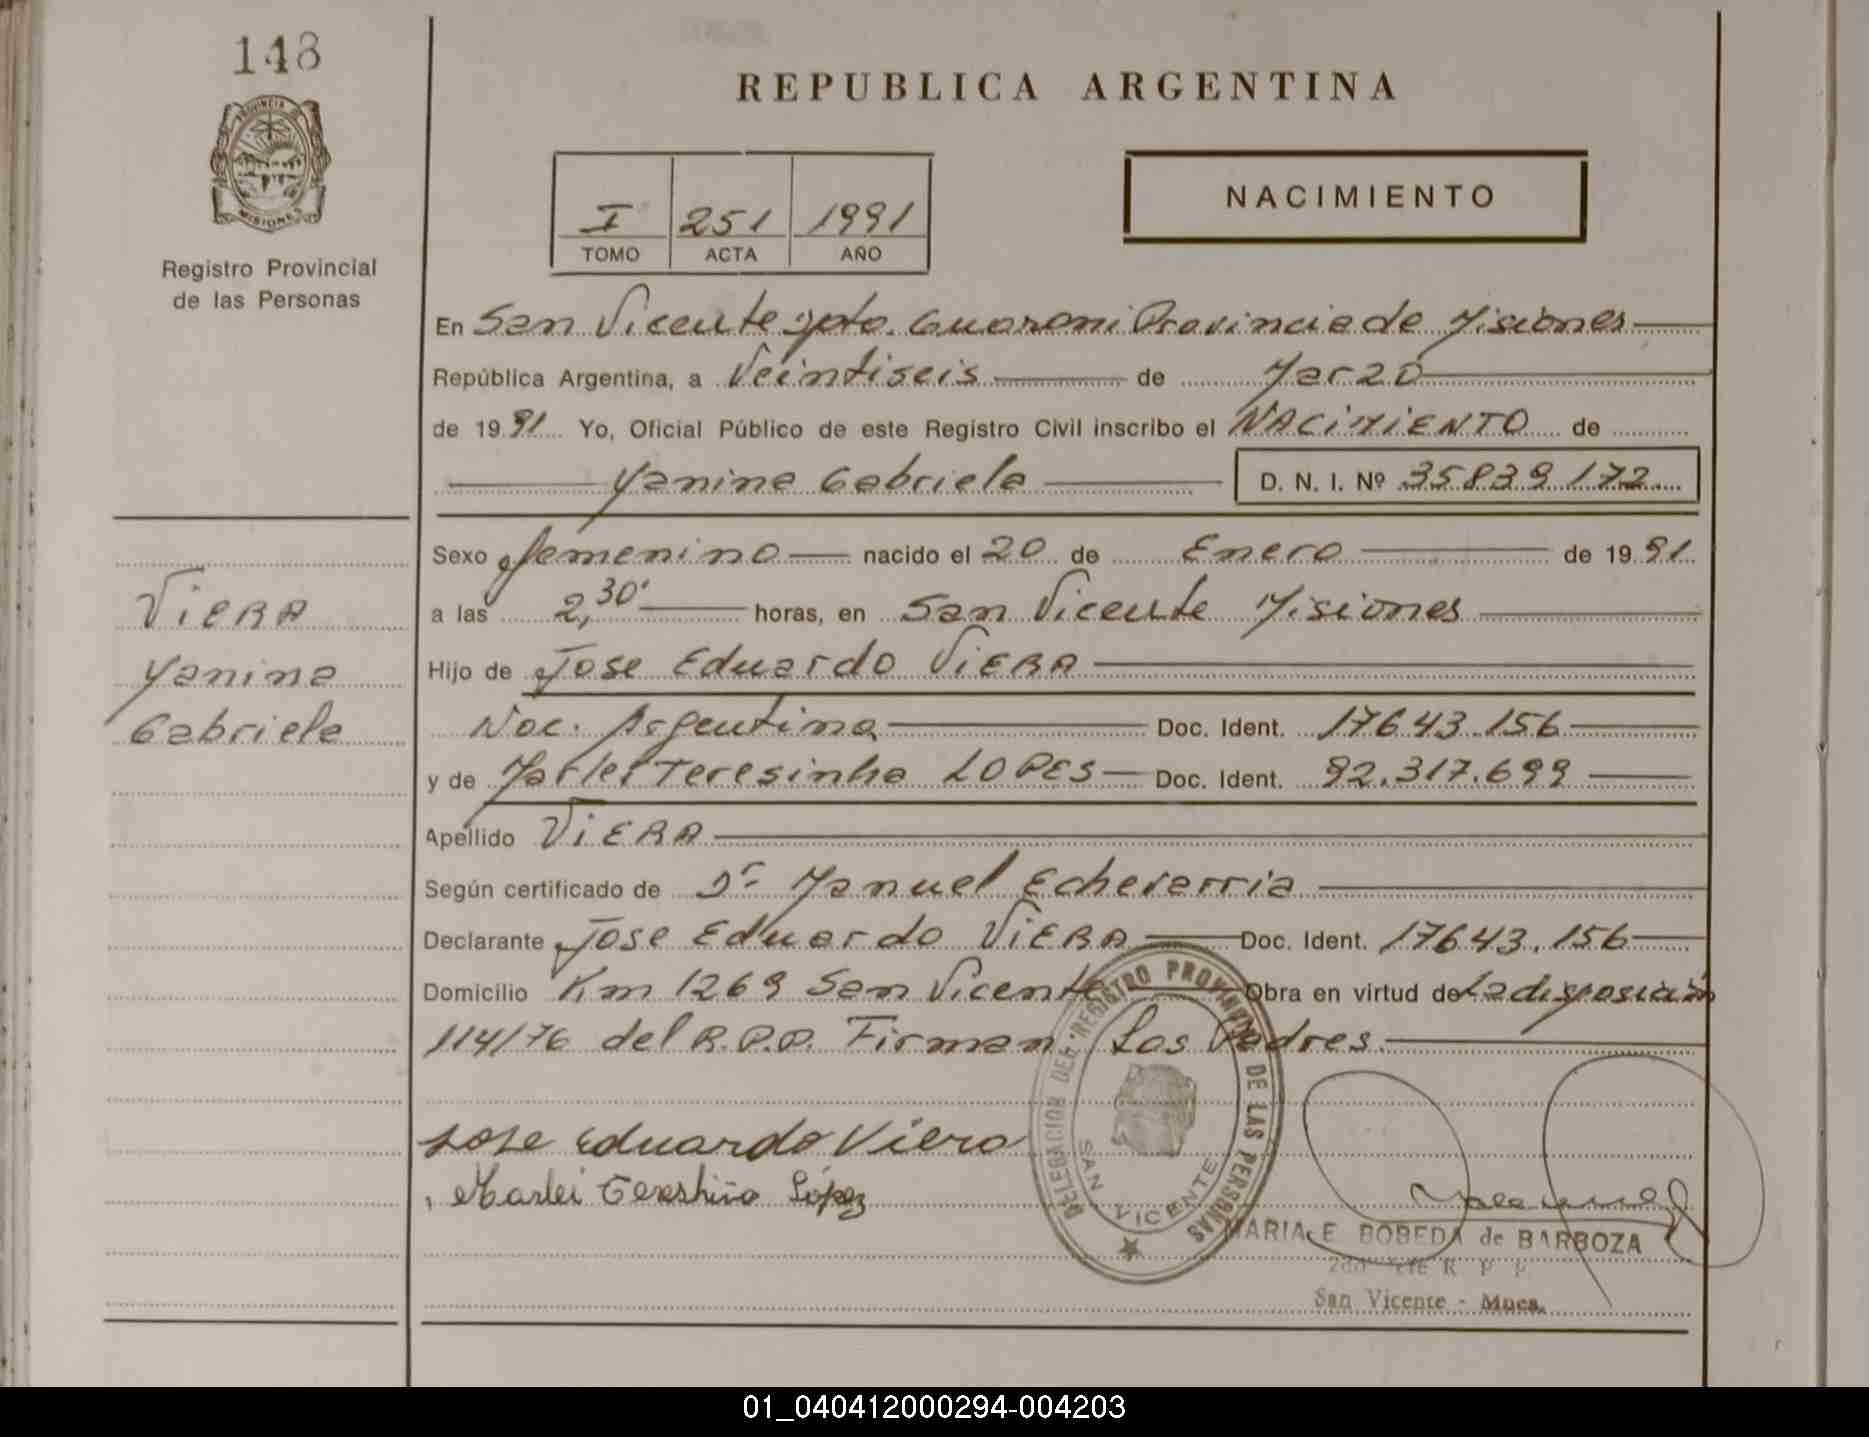 148
REPUBLICA ARGENTINA
PROVINCIA
MISIONES
Registro Provincial
de las Personas
I 251 1991
TOMO ACTA AÑO
NACIMIENTO
En San Vicente Dpto. Guarani Provincia de Misiones
República Argentina, a Veintiseis de Marzo
de 1991 Yo, Oficial Público de este Registro Civil inscribo el NACIMIENTO de
Yanina Gabriela D. N. I. Nº 35839172
Sexo femenino nacido el 20 de Enero de 1991
a las 2,30' horas, en San Vicente Misiones
Hijo de Jose Eduardo VIERA
Nac. Argentina Doc. Ident. 17643.156
y de Marlei Teresinha LOPES Doc. Ident. 92.317.699
Apellido VIERA
Según certificado de Dr Manuel Echeverria
Declarante Jose Eduardo VIERA Doc. Ident. 17643.156
Domicilio Km 1269 San Vicente Obra en virtud de La disposición
114/76 del R.P.P. Firman Los Padres.
VIERA
Yanina
Gabriela
Jose Eduardo Viera
Marlei Teresinha López
DELEGACION DEL REGISTRO PROVINCIAL DE LAS PERSONAS
SAN VICENTE
MARIA E BOBEDA de BARBOZA
R P P
San Vicente - Mnes.
01_040412000294-004203